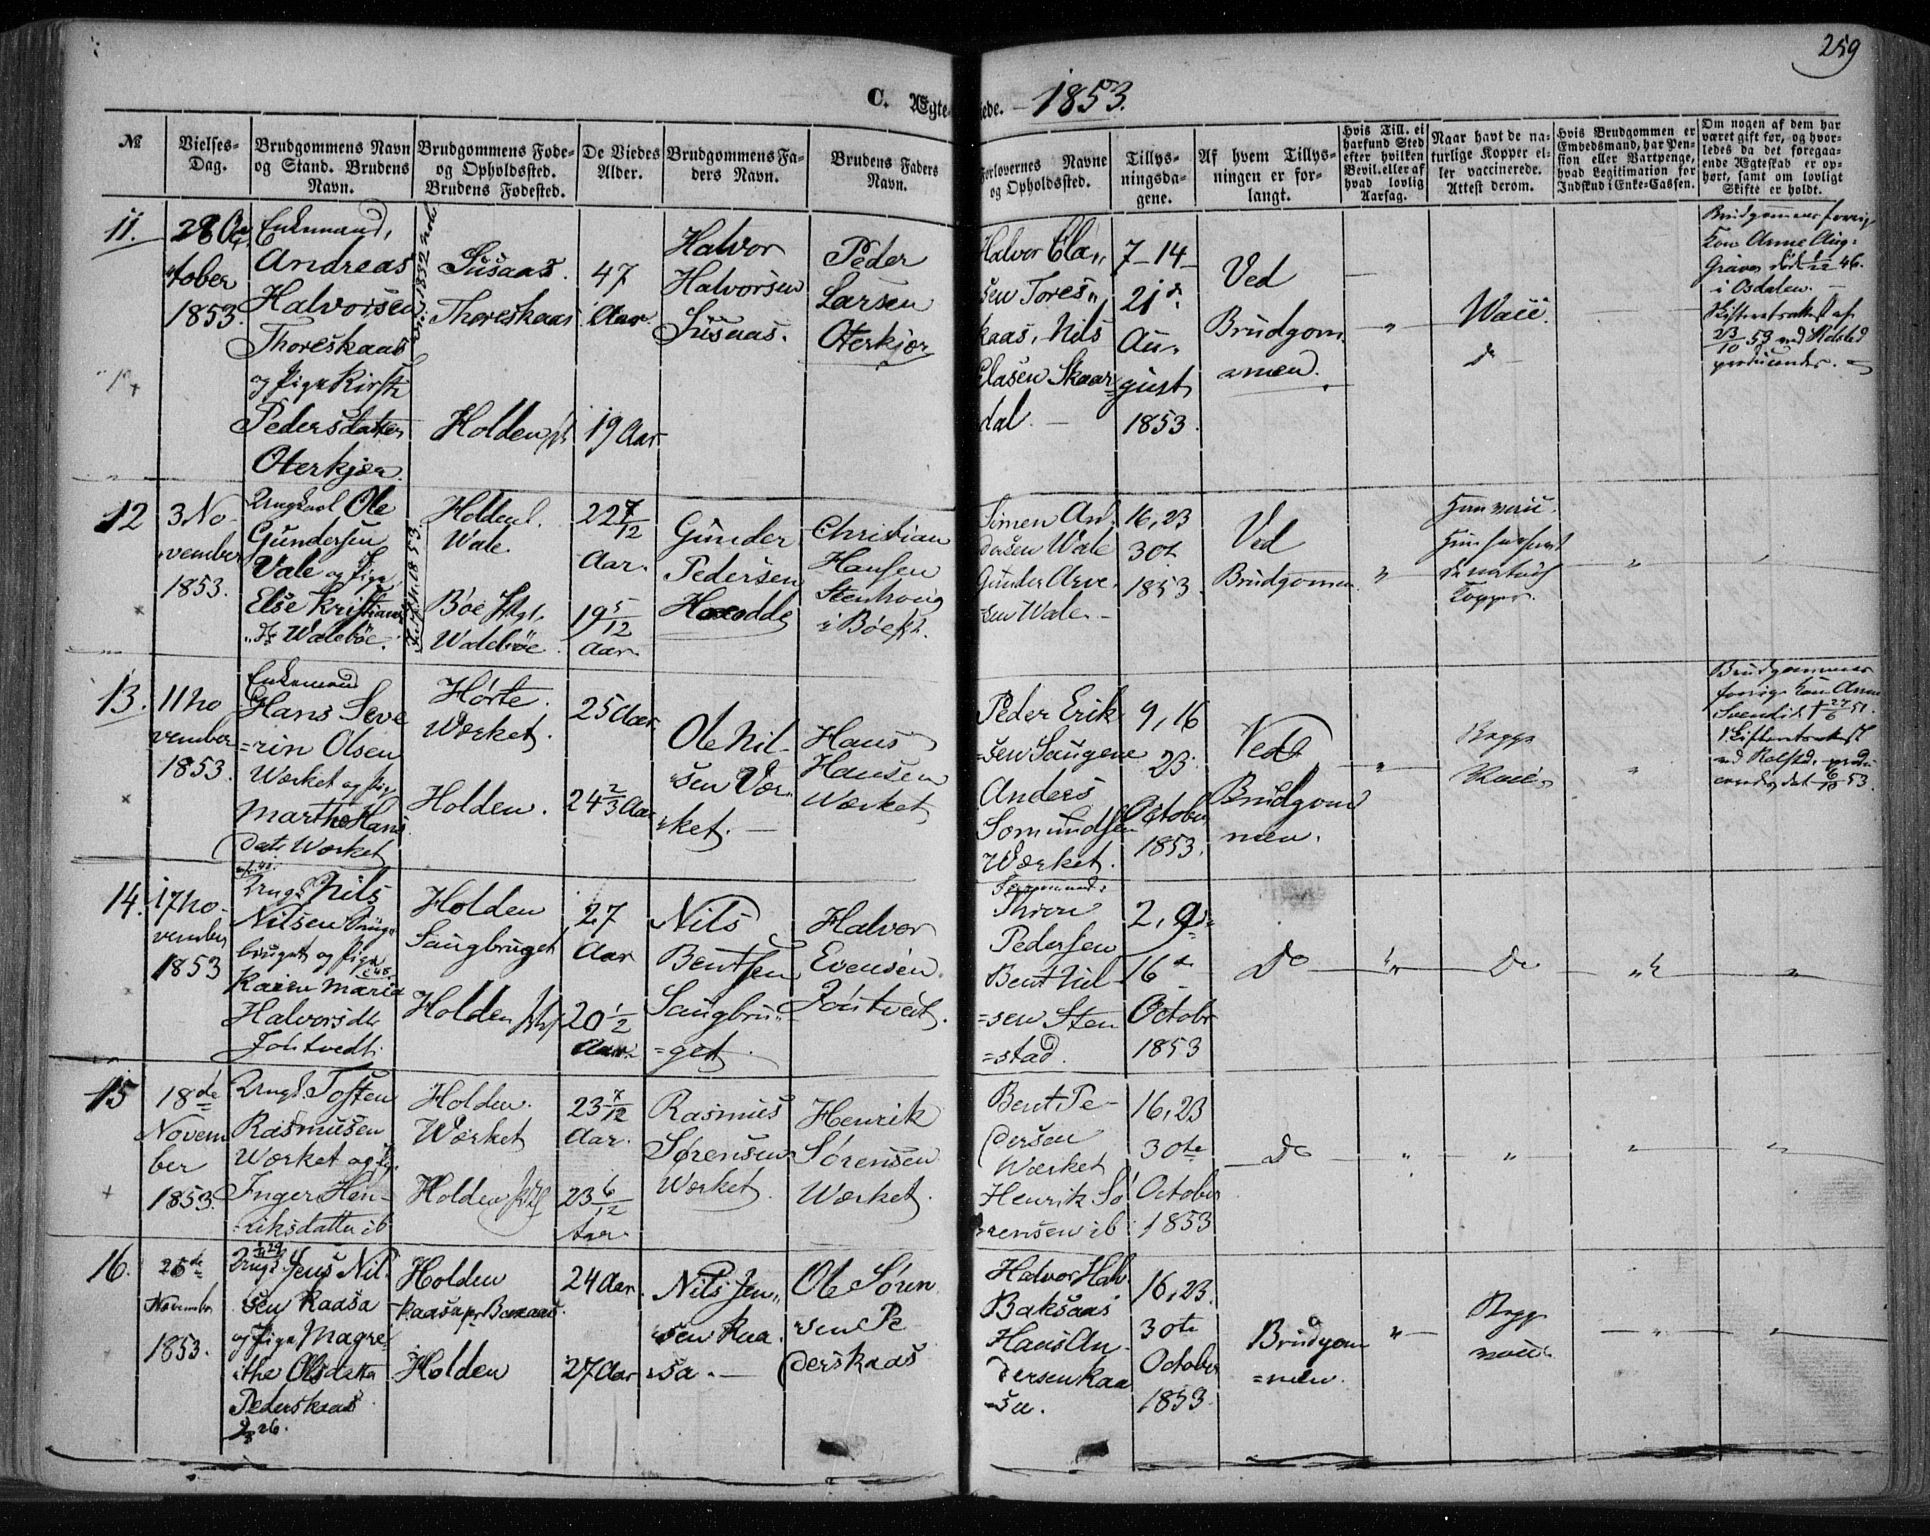 259
C. Ægte- iede. - 1853.
№
Vielses-
Dag.
Brudgommens Navn
og Stand. Brudens
Navn.
Brudgommens Føde-
og Opholdssted.
Brudens Fødested.
De Viedes
Alder.
Brudgommens Fa-
ders Navn.
Brudens Faders
Navn.
Forlovernes Navne
og Opholdssted.
Tillys-
ningsda-
gene.
Af hvem Tillys-
ningen er for-
langt.
Hvis Till. ei
harfund Sted
efter hvilken
Bevil. eller af
hvad lovlig
Aarsag.
Naar havt de na-
turlige Kopper el-
ler vaccinerede.
Attest derom.
Hvis Brudgommen er
Embedsmand, har Pen-
sion eller Vartpenge,
hvad Legitimation for
Indskud i Enke-Cassen.
Om nogen af dem har
været gift før, og hvor-
ledes da det foregaa-
ende Ægteskab er op-
hørt, samt om lovligt
Skifte er holdt.
11.
28 Oc
tober
1853.
Enkemand,
Andreas
Halvorsen
Thoreskaas
og Pige Kirsti
Pedersdatter
Oterkjær
Susaas.
Thoreskaas
Holden
47
Aar
19 Aar
Halvor
Halvorsen
Susaas.
Peder
Larsen
Oterkjær
Halvor Cla"
sen Tores"
kaas, Nils
Clasen Skaar
dal. -
7-14-
21 d.
Au-
gust
1853.
Ved
Brudgom
men.
"
Vacc.
Do
Brudgommens forrige
Kone Anne Aug:
i Osdalen.
producerer.
12
3 No-
vember
1853.
Ungkarl Ole
Gundersen
Vale og Pige
Else Kristians
dr Valebøe.
Holden.
Vale.
Bøe
Valebøe
22 7/12
Aar.
19 5/12
Aar.
Gunder
Pedersen
Christian
Hansen
Stenhovig
i Bøe
Simen An
Vale
Gunder Arve-
sen Vale -
16, 23
30te
1853.
Ved
Brudgomen
"
Kopper.
"
"
13.
11 No
vember
1853.
Enkemand
Hans Seve
=rin Olsen
Værket og Pige
Marthe Hans
datr Værket
Hørte.
Værket.
Holden.
25 Aar.
24 2/3 Aar
Ole Nil-
sen Vær-
ket. -
Hans
Hansen
Værket
Peder Erik
=sen Saugene
Anders
Somundsen
Værket.
9, 16
23
October
1853.
Ved
Brudgom
men.
"
Begge
Vacc.
"
Brudgommens
forrige Kone Anne
14.
17 No-
vember
1853
Ungk. Nils
Nilsen Saug-
bruget og Pige
Karen Maria
Halvorsdtr
Jontvedt.
Holden
Saugbruget
Holden
27
Aar
20 1/2
Aar.
Nils
Bentsen
Saugbru"
=get.
Halvor
Evensen
Jontveit.
Thron
Pedersen
Bent Nil
=sen Sten
=stad.
2, 9de
16de
Octobr
1853
Do
"
Do
"
"
15
18de
Novem
ber
1853.
Ungk. Tosten
Rasmusen
Værket og Pige
Inger Hen-
riksdatter ib
Holden.
Værket
Holden
23 7/12
Aar.
23 6/12
Aar.
Rasmus
Sørensen
Værket.
Henrik
Sørensen
Værket.
Bent Pe-
dersen
Værket
Henrik Sø
rensen ib
16, 23
30te
October
1853
Do
"
"
"
"
16.
25de
November
1853.
Ungk. Jens Nil
sen Kaasa
og Pige Magre
the Olsdatter
Pederskaas
26.
Holden
Kaasa
Holden
24 Aar.
27 Aar
Nils Jen"
sen Kaa
sa. -
Ole Søren
sen Pe
derskaas
Halvor Halv
Baksaas
Hans An-
dersen Kaa
sa.
16, 23.
30te
October
1853.
Brudgom
=men.
"
Begge
vacc.
"